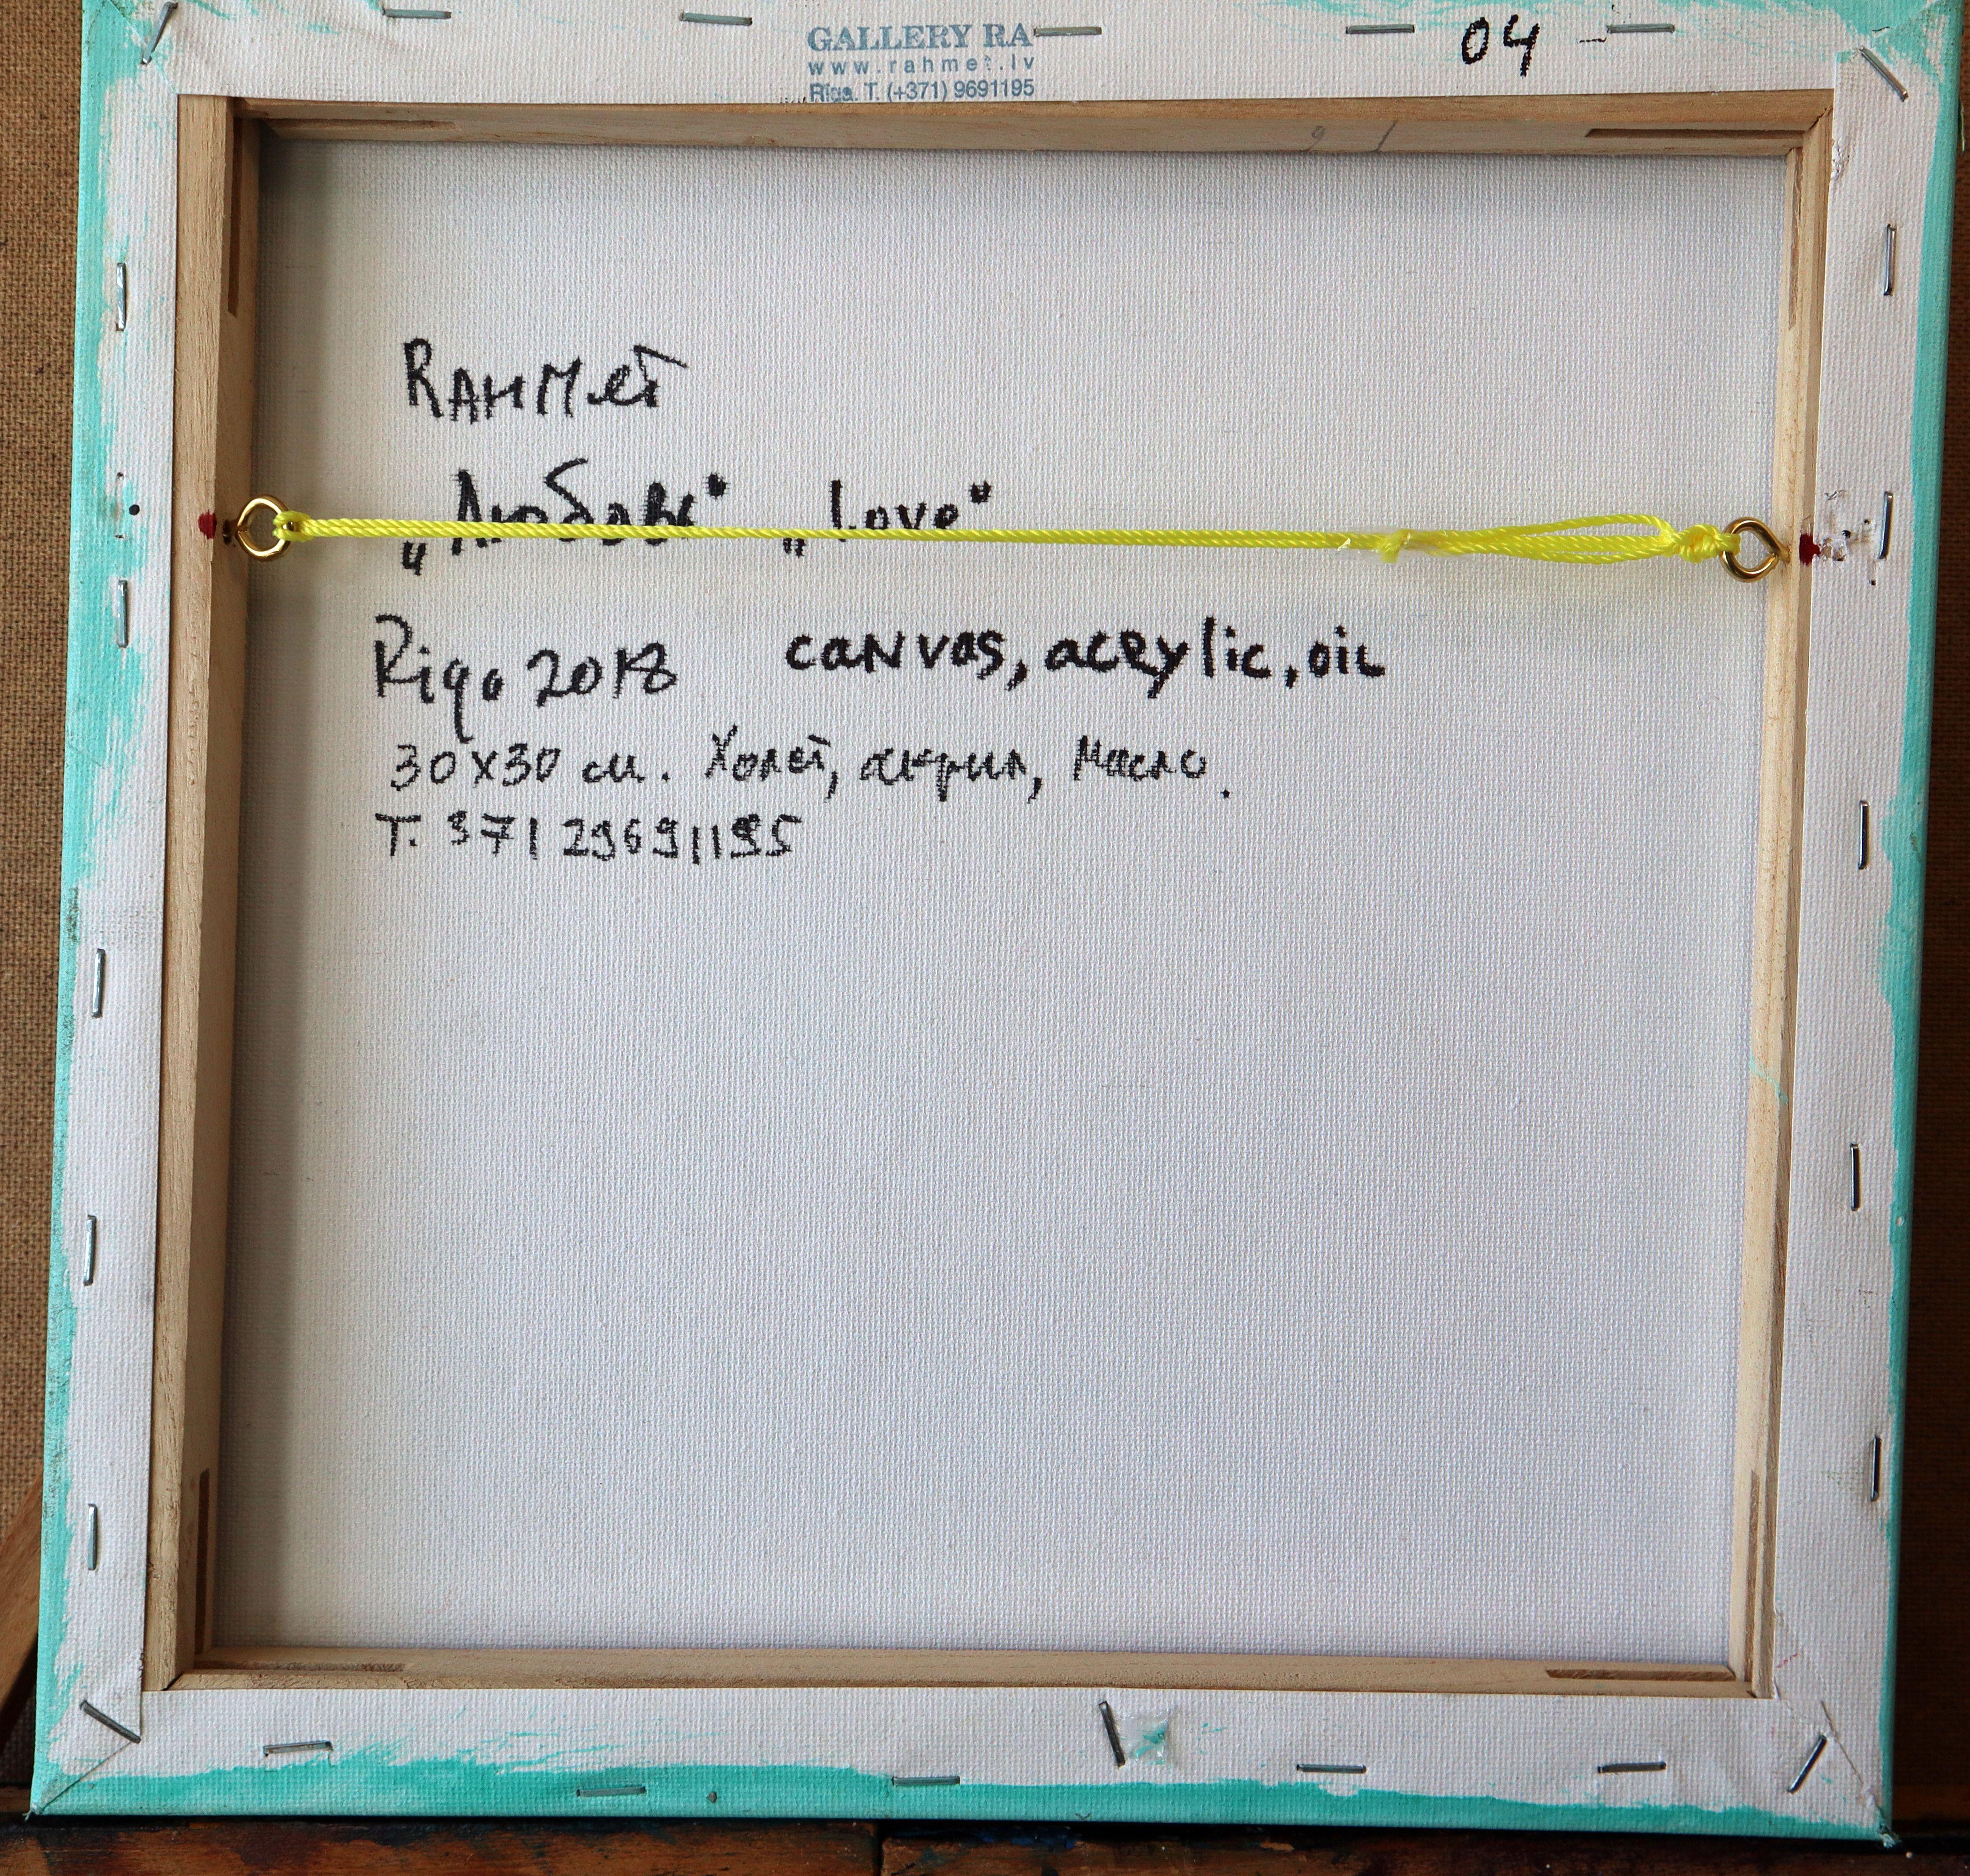 GALLERY RA
www.rahmet.lv
Riga. T. (+371) 9691195
04
RAHMET
„Любовь“ „Love“
Riga 2018 canvas, acrylic, oil
30x30 см. Холст, акрил, масло.
T. 371 29691195